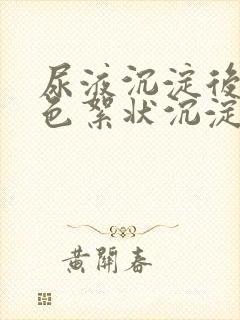 尿液沉淀後
色絮状沉淀
黃開春